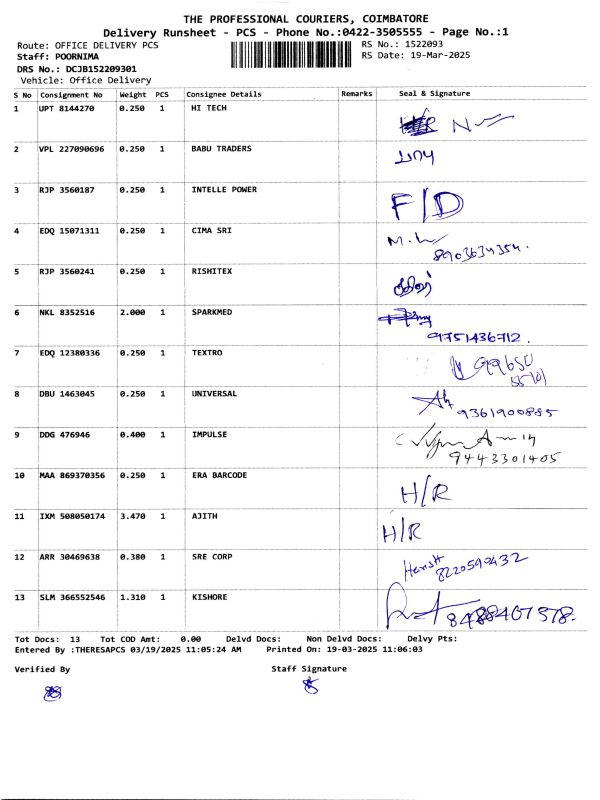 THE PROFESSIONAL COURIERS, COIMBATORE
Delivery Runsheet - PCS - Phone No.:0422-3505555 - Page No.:1
Route: OFFICE DELIVERY PCS RS No.: 1522093
Staff: POORNIMA RS Date: 19-Mar-2025
DRS No.: DCJB152209301
Vehicle: Office Delivery
S No Consignment No Weight PCS Consignee Details Remarks Seal & Signature
1 UPT 8144270 0.250 1 HI TECH
2 VPL 227090696 0.250 1 BABU TRADERS
3 RJP 3560187 0.250 1 INTELLE POWER F/D
4 EDQ 15071311 0.250 1 CIMA SRI
8903634354.
5 RJP 3560241 0.250 1 RISHITEX
6 NKL 8352516 2.000 1 SPARKMED
9751436712.
7 EDQ 12380336 0.250 1 TEXTRO 99650
8 DBU 1463045 0.250 1 UNIVERSAL
9361900885
9 DDG 476946 0.400 1 IMPULSE
9443301405
10 MAA 869370356 0.250 1 ERA BARCODE H/R
11 IXM 508050174 3.470 1 AJITH H/R
12 ARR 30469638 0.380 1 SRE CORP
8220590432
13 SLM 366552546 1.310 1 KISHORE
Tot Docs: 13 Tot COD Amt: 0.00 Delvd Docs: Non Delvd Docs: Delvy Pts:
Entered By :THERESAPCS 03/19/2025 11:05:24 AM Printed On: 19-03-2025 11:06:03
Verified By Staff Signature